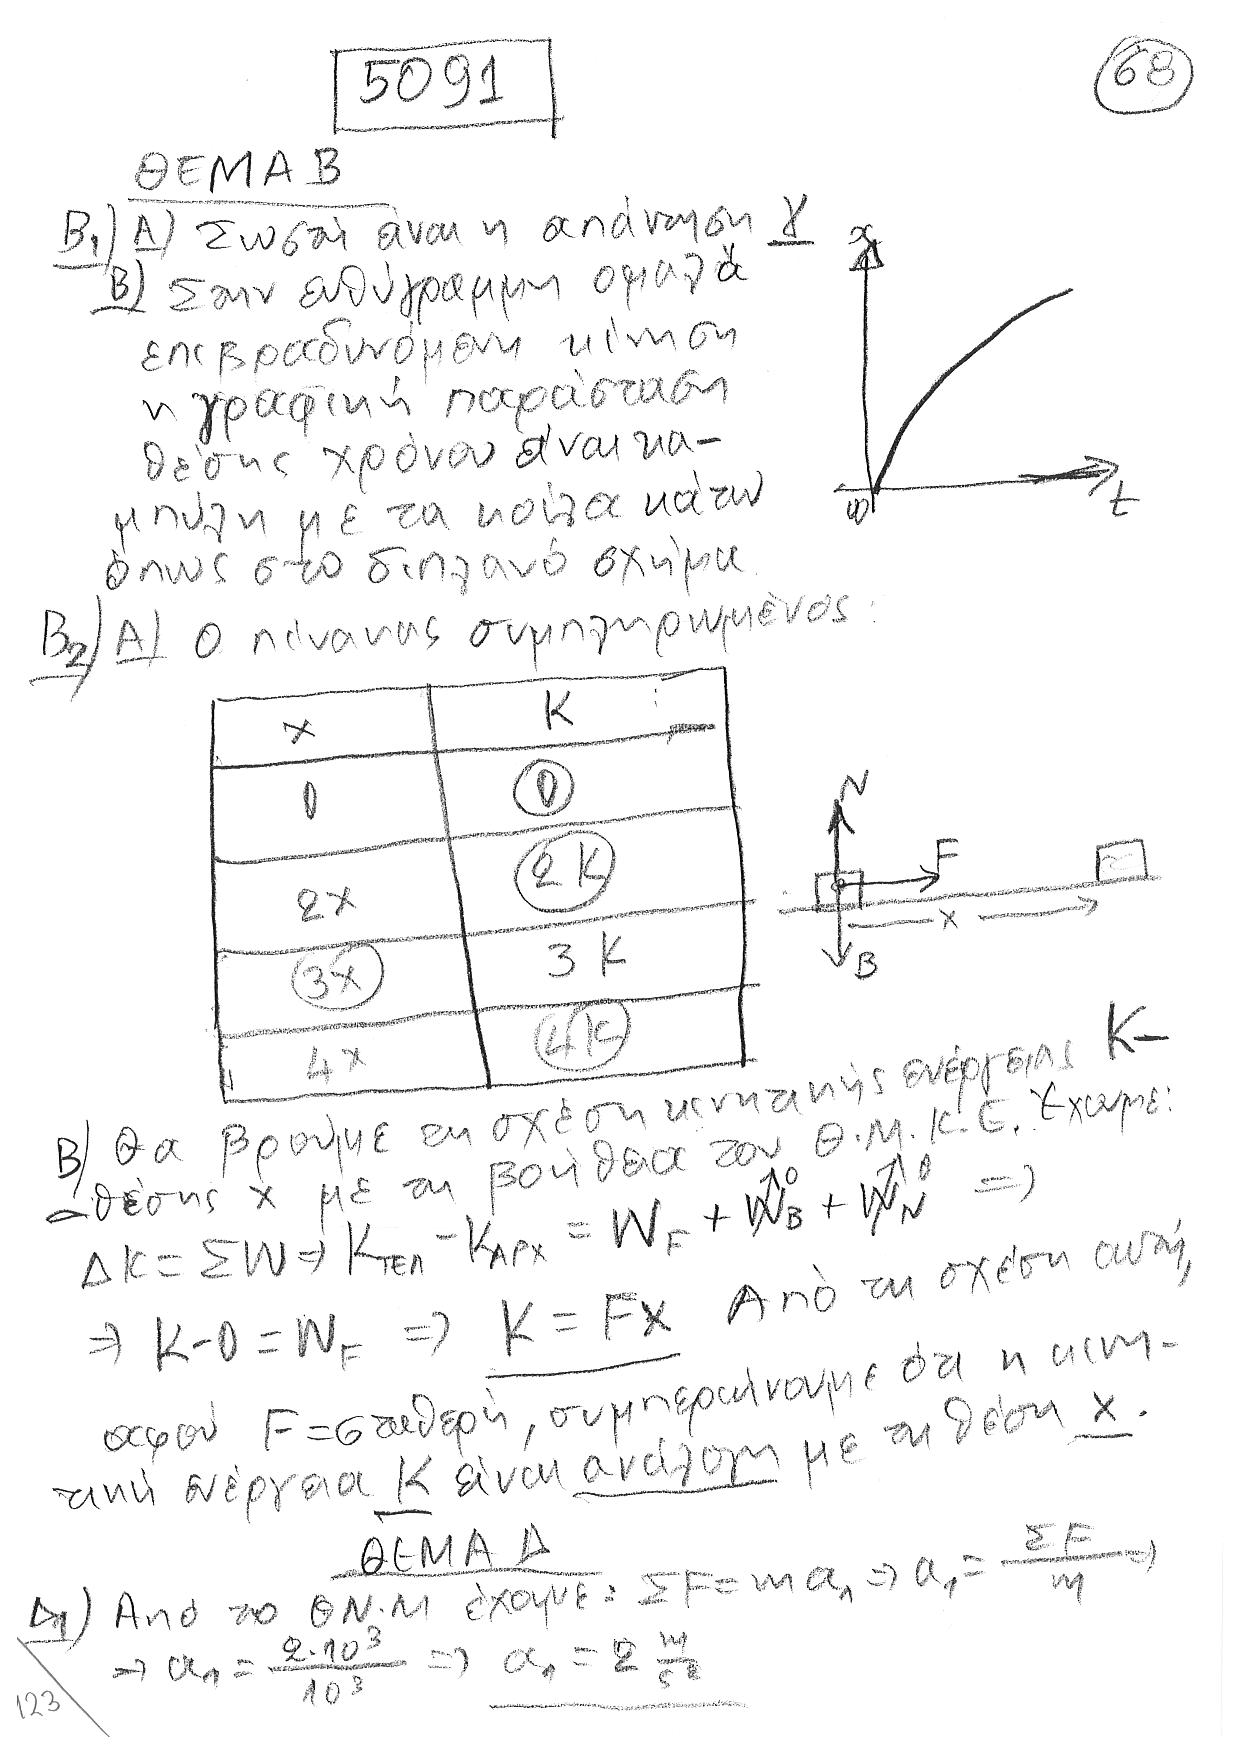 5091
68
ΘΕΜΑ Β
Β₁) Α) Σωστή είναι η απάντηση γ
Β) Στην ευθύγραμμη ομαλά
επιβραδυνόμενη κίνηση
η γραφική παράσταση
θέσης χρόνου είναι κα-
μπύλη με τα κοίλα κάτω
όπως στο διπλανό σχήμα.
x
0
t
Β₂) Α) Ο πίνακας συμπληρωμένος:
x K
0 0
2x 2K
3x 3K
4x 4K
N
F
x
B
Β) Θα βρούμε τη σχέση κινητικής ενέργειας K-
-θέσης x με τη βοήθεια του Θ.Μ.Κ.Ε. Έχουμε:
ΔK = ΣW ⇒ K_ΤΕΛ - K_ΑΡΧ = W_F + W_B⁰ + W_N⁰ ⇒
⇒ K-0 = W_F ⇒ K = Fx Από τη σχέση αυτή,
αφού F = σταθερή, συμπεραίνουμε ότι η κινη-
τική ενέργεια K είναι ανάλογη με τη θέση x.
ΘΕΜΑ Δ
Δ₁) Από το ΘΝ.Μ έχουμε: ΣF = m a₁ ⇒ a₁ = ΣF/m ⇒
⇒ a₁ = 2·10³/10³ ⇒ a₁ = 2 m/s²
123